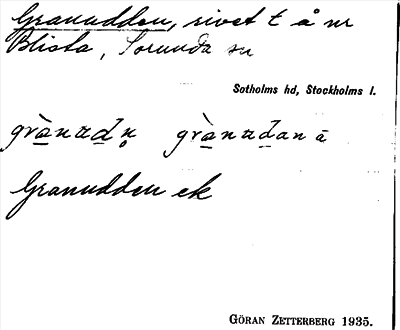 Granudden, rivet t å nr
Blista, Sorunda sn
Sotholms hd, Stockholms l.
grànadn grànadan ā
Granudden ek
GÖRAN ZETTERBERG 1935.